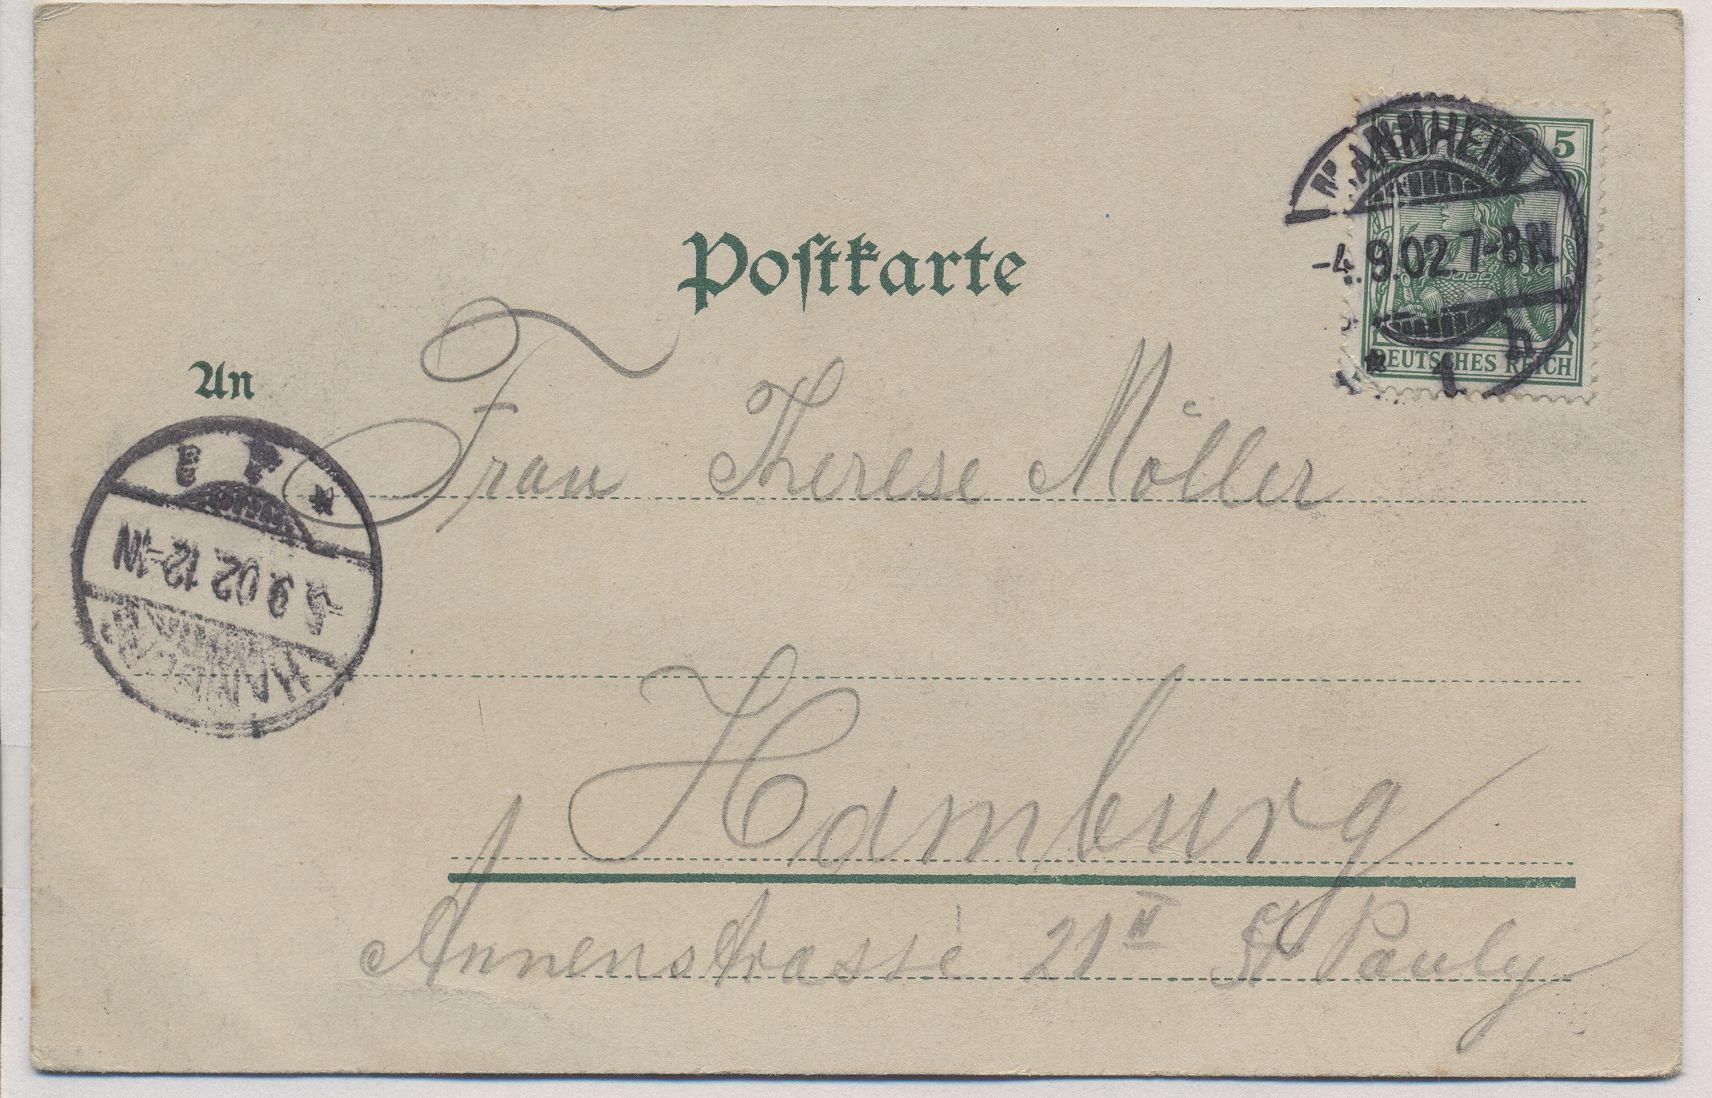 Postkarte
5
MANNHEIM
-4.9.02.7-8N.
* 1 b
DEUTSCHES REICH
An
Frau Therese Möller
5.9.02 12-1N
HAMBURG
Hamburg
Annenstrasse 21 II St Pauly